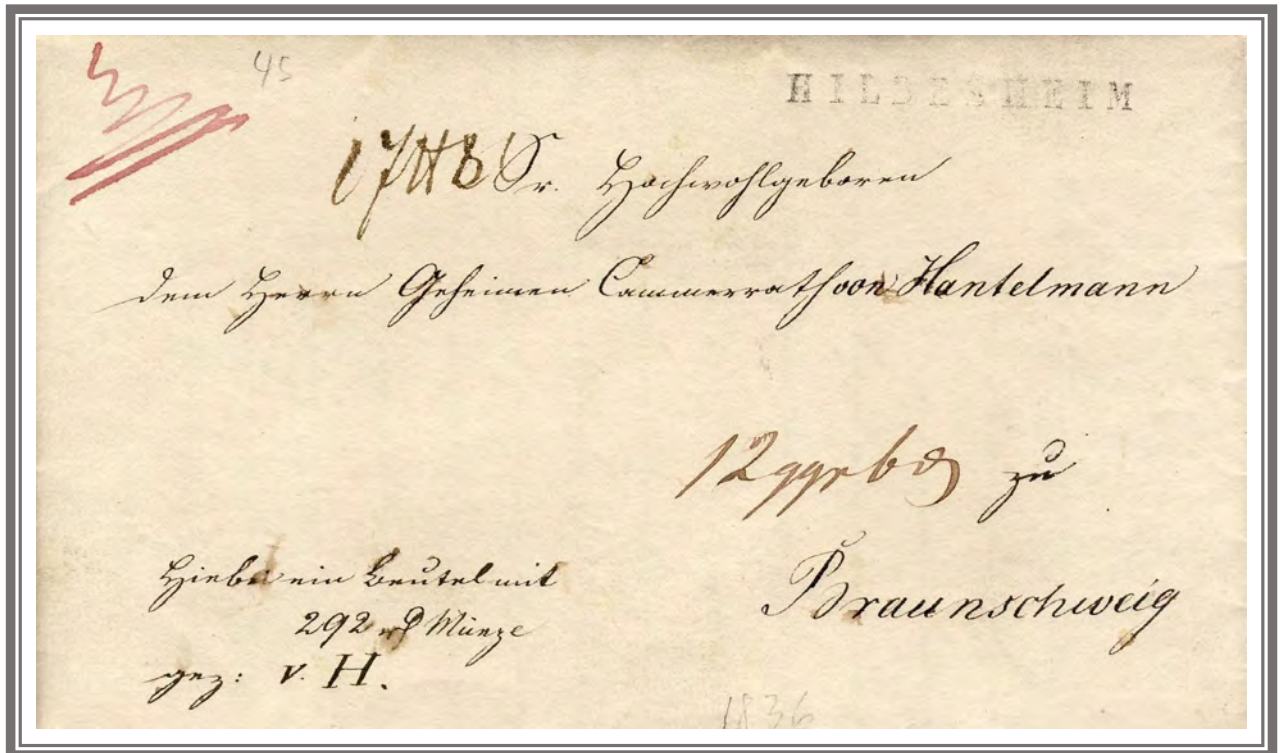 45
HILDESHEIM
Sr. Hochwohlgeboren
dem Herrn Geheimen Cammerrath von Hantelmann
zu
Braunschweig
Hiebei ein Beutel mit
292 Münze
gez: v. H.
1836